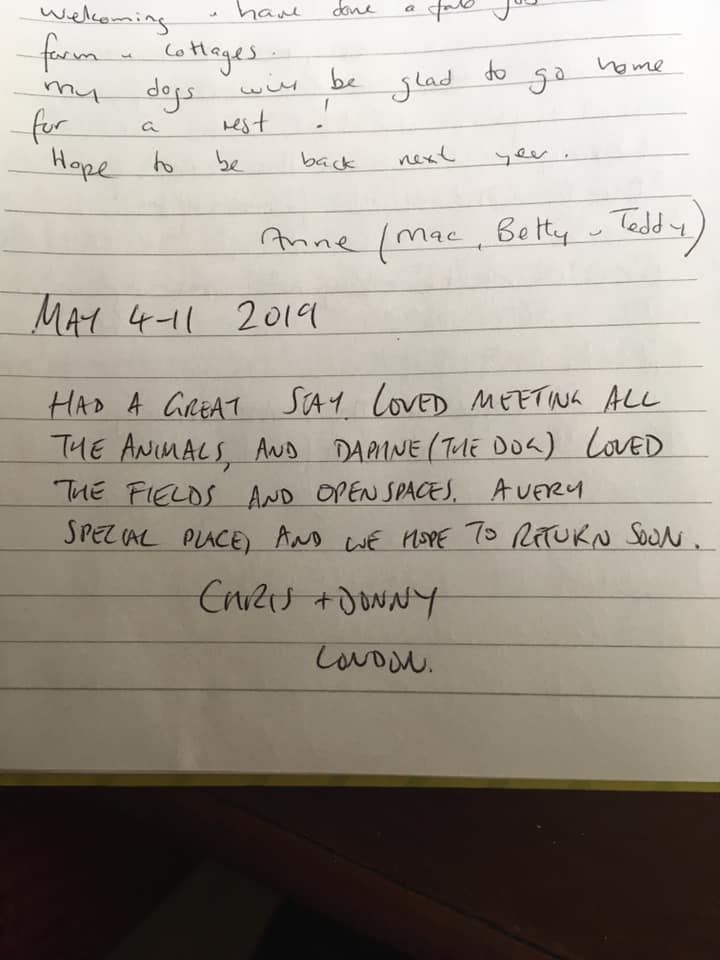 Welcoming & have done a fab job
farm & cottages.
My dogs will be glad to go home
for a rest!
Hope to be back next year.
Anne (Mac, Betty & Teddy)
MAY 4-11 2019
HAD A GREAT STAY. LOVED MEETING ALL
THE ANIMALS, AND DAPHNE (THE DOG) LOVED
THE FIELDS AND OPEN SPACES. A VERY
SPECIAL PLACE, AND WE HOPE TO RETURN SOON.
CHRIS + DONNY
LONDON.